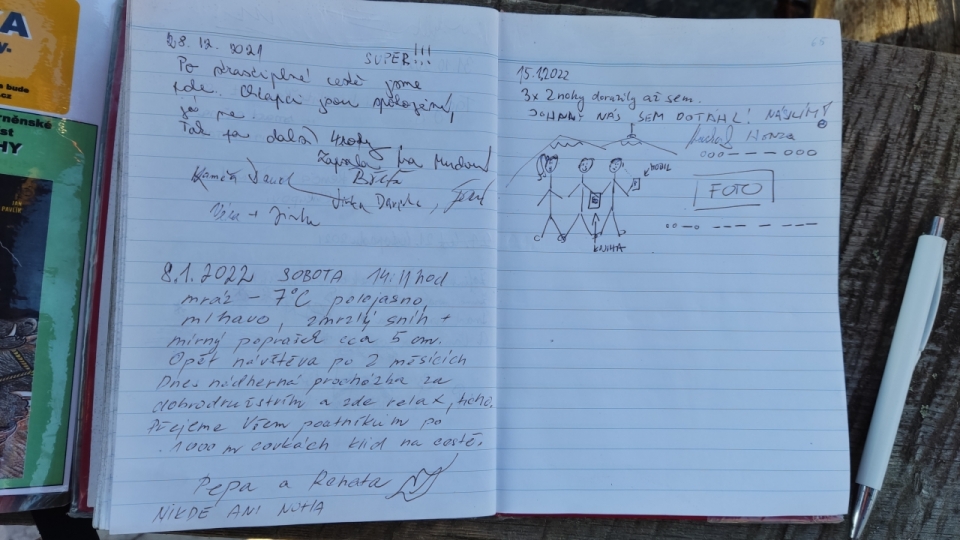 A
y.
a bude
.cz
rněnské
st
HY
JAN
28.12.2021
SUPER!!!
Po strastiplné cestě jsme
zde. Chlapci jsou spokojení,
já ne.
Tak za další 4 roky
Kamča
Jitka
Věra + Jirka
8.1.2022 SOBOTA 14:11 hod
mráz -7°C polojasno,
mlhavo, zmrzlý sníh +
mírný poprašek cca 5 cm.
Opět návštěva po 2 měsících
Dnes nádherná procházka za
dobrodružstvím a zde relax, ticho.
Přejeme Všem poutníkům po
1000 m cestě.
Pepa a Renata
NIKDE ANI NOHA
65
15.1.2022
3x 2 nohy dorazily až sem.
JOHNNY NÁS SEM DOTÁHL! NÁSILÍM!
HONZA
MOBIL
FOTO
KNIHA